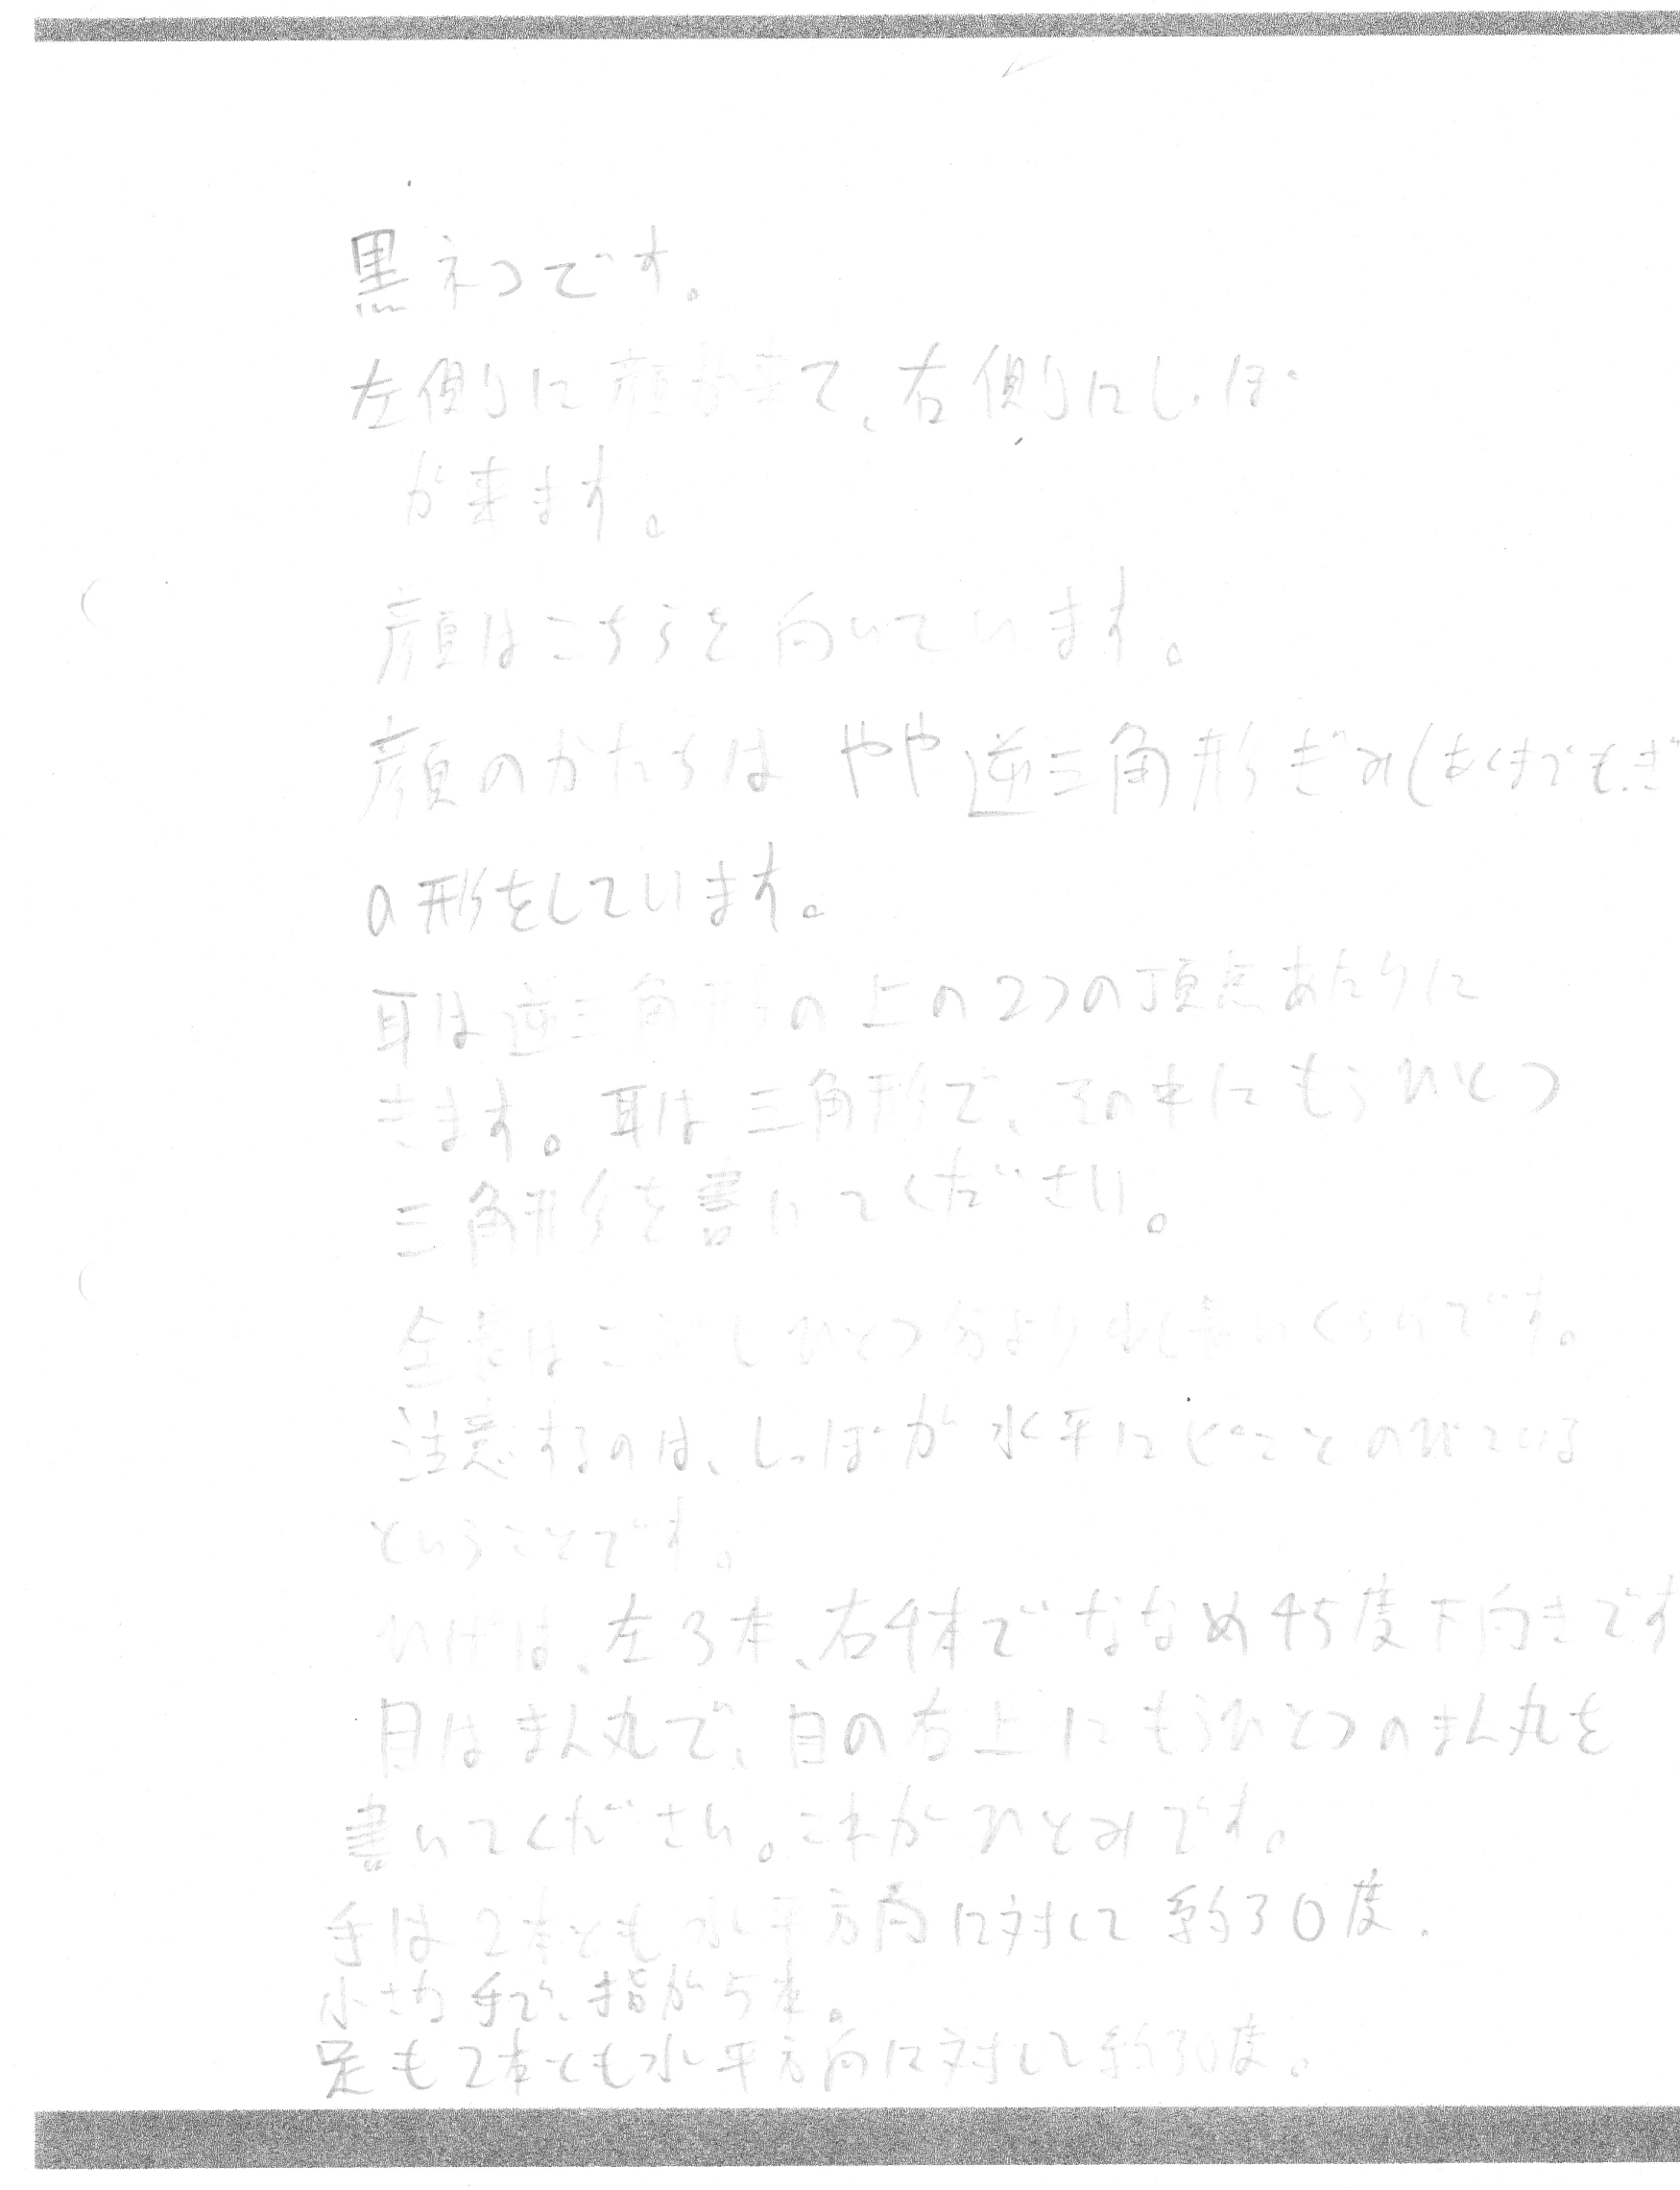 黒ネコです。
左側に顔が来て、右側にしっぽ
が来ます。
顔はこちらを向いています。
顔のかたちは やや逆三角形ぎみ(あくまでもぎ
の形をしています。
耳は逆三角形の上の2つの頂点あたりに
きます。耳は三角形で、その中にもうひとつ
三角形を書いてください。
全長はこぶしひとつ分より少し長いくらいです。
注意するのは、しっぽが水平にピンとのびている
ということです。
ひげは、左3本、右4本でななめ45度下向きです
目はまん丸で、目の右上にもうひとつのまん丸を
書いてください。これがひとみです。
手は2本とも水平方向に対して約30度.
小さな手で、指が5本。
足も2本とも水平方向に対して約30度。